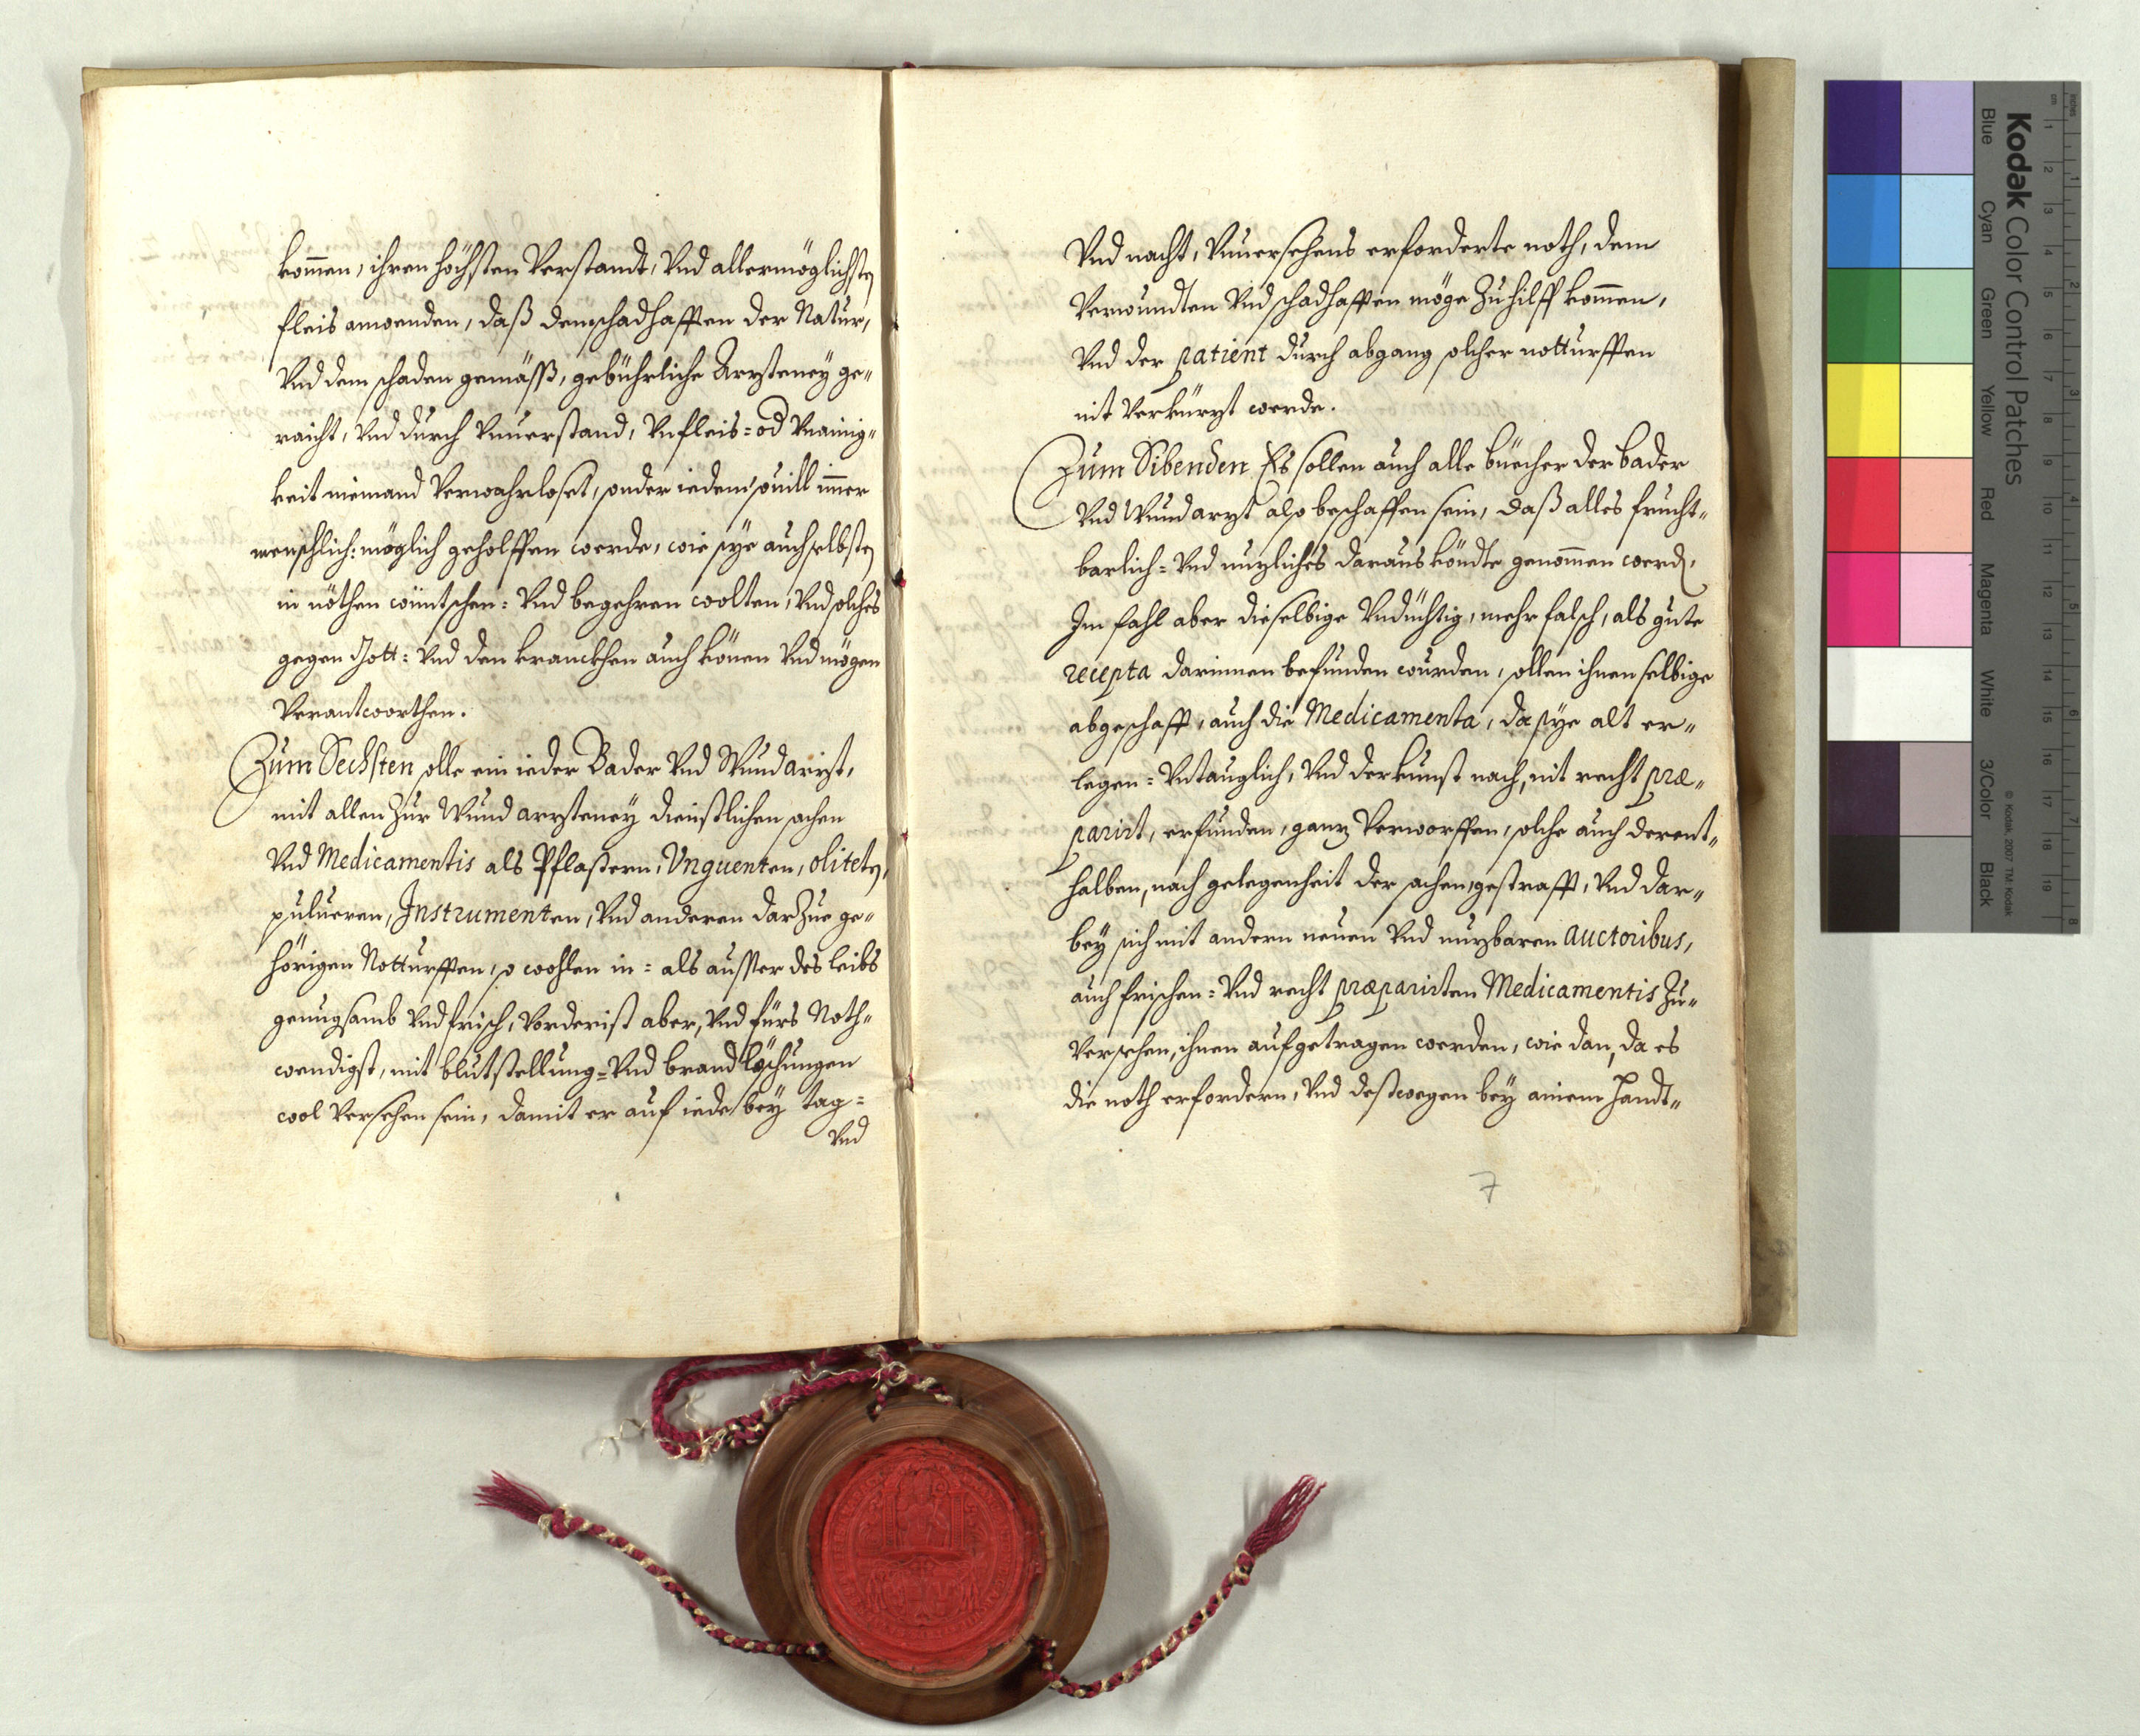 kommen, ihren höchsten Verstandt, Vnd allermöglichsten
fleis anwenden, daß dem schadhafften der Natur,
Vnd dem schaden gemäß, gebührliche Arzteney ge=
raicht, Vnd durch Vnuerstand, Vnfleis= od Vnainig=
keit niemand Verwahrloset, sonder iedem souill immer
menschlich: möglich geholffen werde, wie sye auch selbsten
in nöthen wüntschen= Vnd begehren wolten, Vnd solches
gegen Gott= Vnd den kranckhen auch könen Vnd mögen
Verantworthen.
Zum Sechsten solle ein ieder Bader Vnd Wundarzt,
mit allen Zur Wundarzteney dienstlichen sachen
Vnd Medicamentis als Pflastern, Vnguenten, oliteten,
pulueren, Instrumenten, Vnd anderen darZue ge=
hörigen Notturfften, so wohlen in= als ausser des leibs
genugsamb Vnd frisch, Vorderist aber, Vnd fürs Noth=
wendigst, mit blutstellung= Vnd brand löschungen
wol Versehen sein, damit er auf iede bey tag=
Vnd
Vnd nacht, Vnuersehens erforderte noth, dem
Verwundten Vnd schadhafften möge Zu hilff kommen,
Vnd der patient durch abgang solcher notturfften
nit Verkürzt werde.
Zum Sibenden Es sollen auch alle büecher der bader
Vnd Wundarzt also beschaffen sein, daß alles frucht=
barlich= Vnd nuzliches daraus köndte genommen werd,
Im fahl aber dieselbige Vndüchtig, mehr falsch, als gute
recepta darinnen befunden wurden, sollen ihnen selbige
abgeschafft, auch die Medicamenta, da sye alt er=
legen= Vntauglich, Vnd der kunst nach, nit recht præ=
parirt, erfunden, ganz Verworffen, solche auch derent=
halben, nach gelegenheit der sachen gestrafft, Vnd dar=
bey sich mit andern neuen Vnd nuzbaren auctoribus,
auch frischen= Vnd recht præparirten Medicamentis Zu=
Versehen, ihnen aufgetragen werden, wie dan, da es
die noth erfordern, Vnd deßwegen bey ainem Handt=
7
Kodak Color Control Patches
Blue
Cyan
Green
Yellow
Red
Magenta
White
3/Color
Black
© Kodak, 2007 TM: Kodak
inches
cm
1 2 3 4 5 6 7 8
1 2 3 4 5 6 7 8 9 10 11 12 13 14 15 16 17 18 19